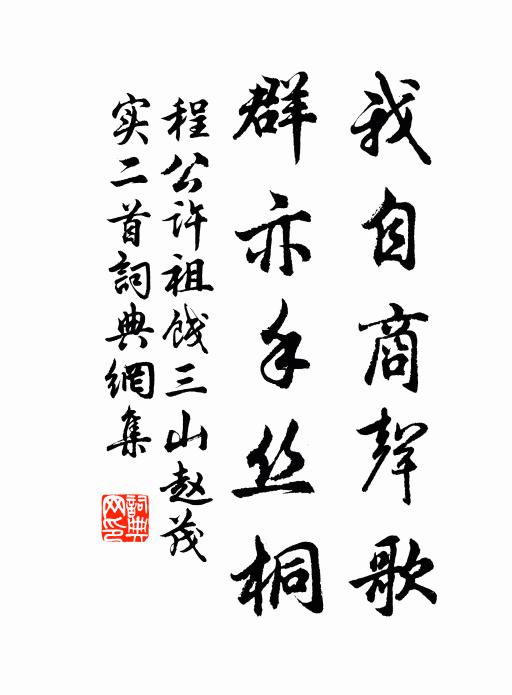 我自商聲歌
群亦手丝桐
程公许祖饯三山赵茂
实二首詞典網集
詞典
网印